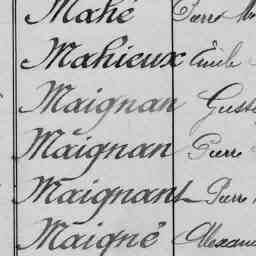 Mahé Pierre
Mahieux Émile
Maignan
Maignan Pierre
Maignant Pierre
Maigné